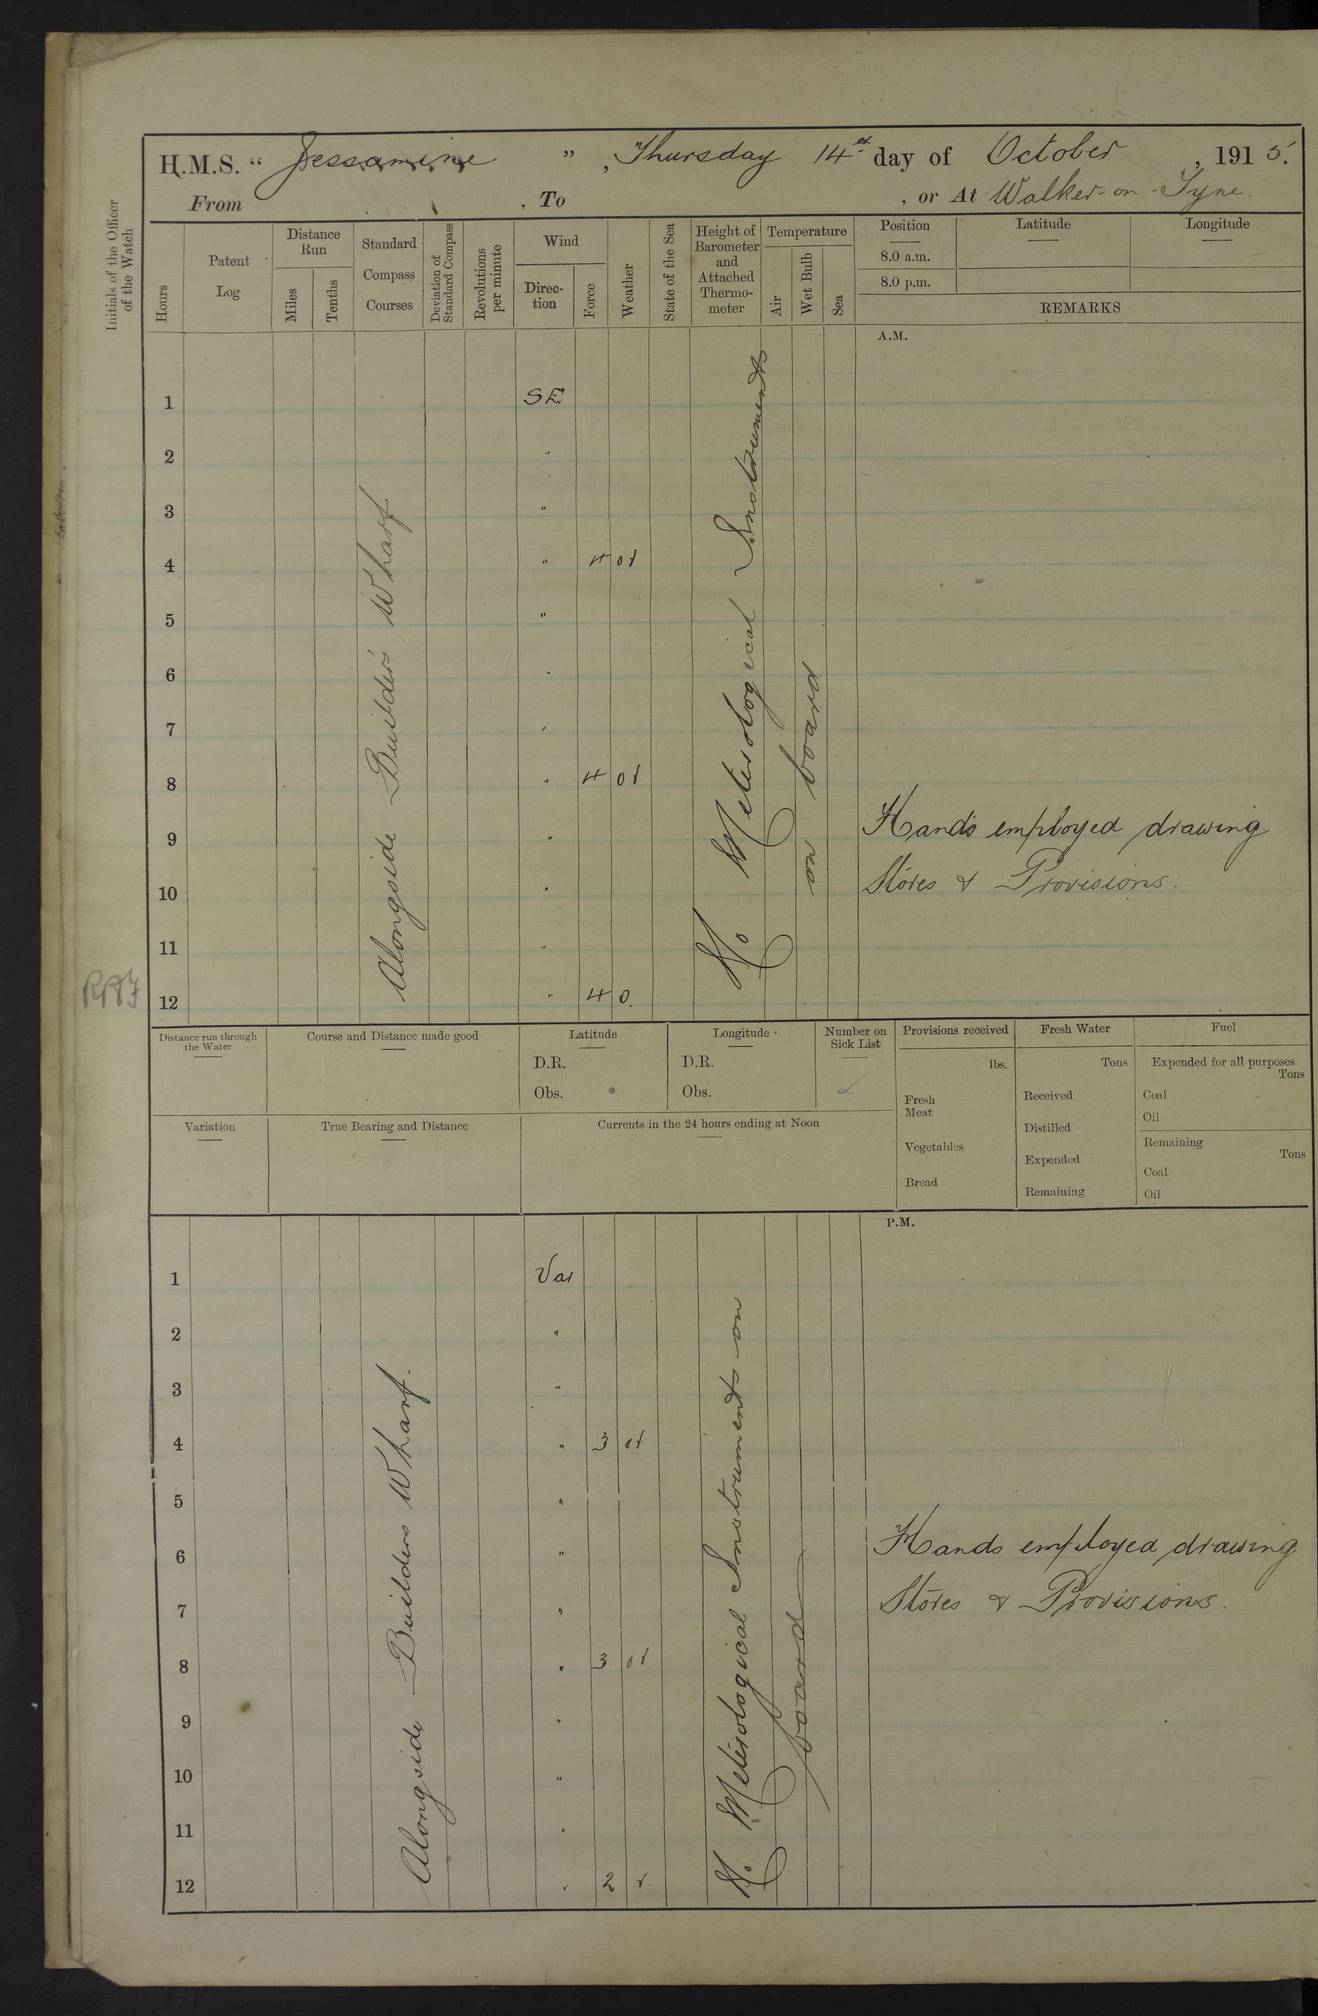 H.M.S. “ Jessamine ” , Thursday 14th day of October , 1915.
From , To , or At Walker-on-Tyne.
Initials of the Officer of the Watch
Hours
Patent Log
Distance Run
Miles
Tenths
Standard Compass Courses
Deviation of Standard Compass
Revolutions per minute
Wind
Direc-tion
Force
Weather
State of the Sea
Height of Barometer and Attached Thermo-meter
Temperature
Air
Wet Bulb
Sea
Position
Latitude
Longitude
8.0 a.m.
8.0 p.m.
REMARKS
A.M.
1 SE
2 "
3 "
4 " 4 or
5 "
6 "
7 "
8 " 4 or
9 " Hands employed drawing
10 " Stores & Provisions.
11 "
12 " 4 o.
Alongside Builders Wharf
No Meterological Instruments
on board
Distance run through the Water
Course and Distance made good
Latitude
D.R.
Obs.
Longitude
D.R.
Obs.
Number on Sick List
Provisions received
lbs.
Fresh Meat
Vegetables
Bread
Fresh Water
Tons
Received
Distilled
Expended
Remaining
Fuel
Expended for all purposes
Tons
Coal
Oil
Remaining
Tons
Coal
Oil
Variation
True Bearing and Distance
Currents in the 24 hours ending at Noon
P.M.
1 Var
2 "
3 "
4 " 3 or
5 "
6 " Hands employed drawing
7 " Stores & Provisions.
8 " 3 or
9 "
10 "
11 "
12 " 2 r.
Alongside Builders Wharf.
No Meterological Instruments on
board